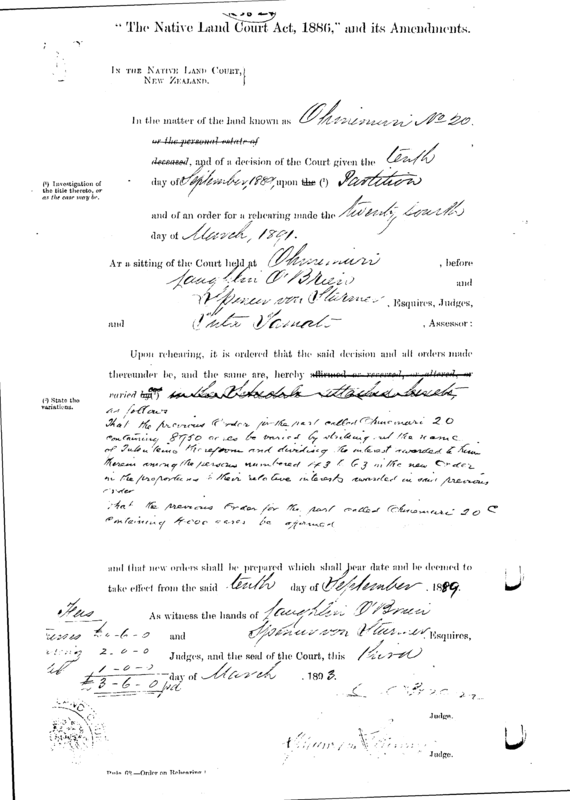 "The Native Land Court Act, 1886," and its Amendments.
IN THE NATIVE LAND COURT,
NEW ZEALAND.
In the matter of the land known as Ohinemuri No 20.
or the personal estate of
deceased, and of a decision of the Court given the tenth
(¹) Investigation of the title thereto, or as the case may be.
day of September, 1889, upon the (¹) Partition
and of an order for a rehearing made the twenty fourth
day of March, 1891.
AT a sitting of the Court held at Ohinemuri , before
Laughlin O'Brien and
Spencer von Sturmer, Esquires, Judges,
and , Assessor:
Upon rehearing, it is ordered that the said decision and all orders made
thereunder be, and the same are, hereby affirmed or reversed, or altered, or
(²) State the variations.
varied in the Schedule attached hereto
as follows
That the previous Order for the part called Ohinemuri 20
containing 8750 acres be varied by striking out the name
of therefrom and dividing the interest awarded to him
therein among the persons numbered to 63 in the new Order
in the proportions to their relative interests awarded in said previous
order
That the previous Order for the part called Ohinemuri 20 C
containing 4000 acres be affirmed
and that new orders shall be prepared which shall bear date and be deemed to
take effect from the said tenth day of September , 1889.
As witness the hands of Laughlin O'Brien
and Spencer von Sturmer, Esquires,
Judges, and the seal of the Court, this third
day of March , 1893.
Fees
£0-6-0
2-0-0
1-0-0
£3-6-0 pd
Judge.
Judge.
Rule 62.—Order on Rehearing